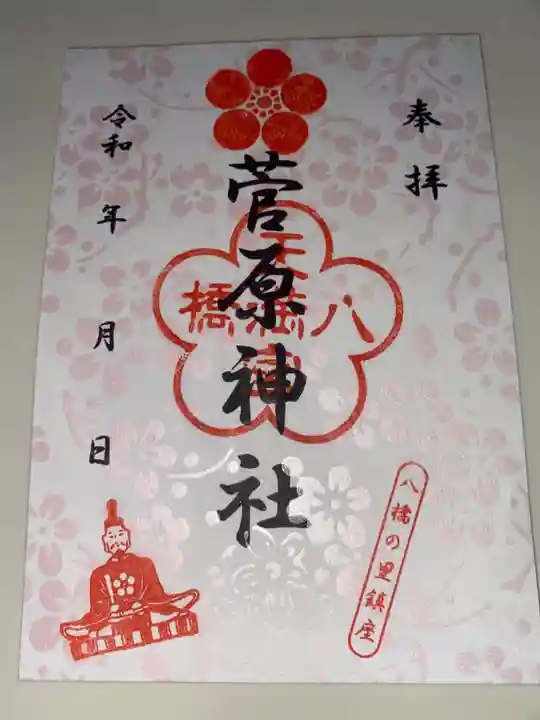 奉拝
菅原神社
八橋
天満宮
八橋の里鎮座
令和 年 月 日